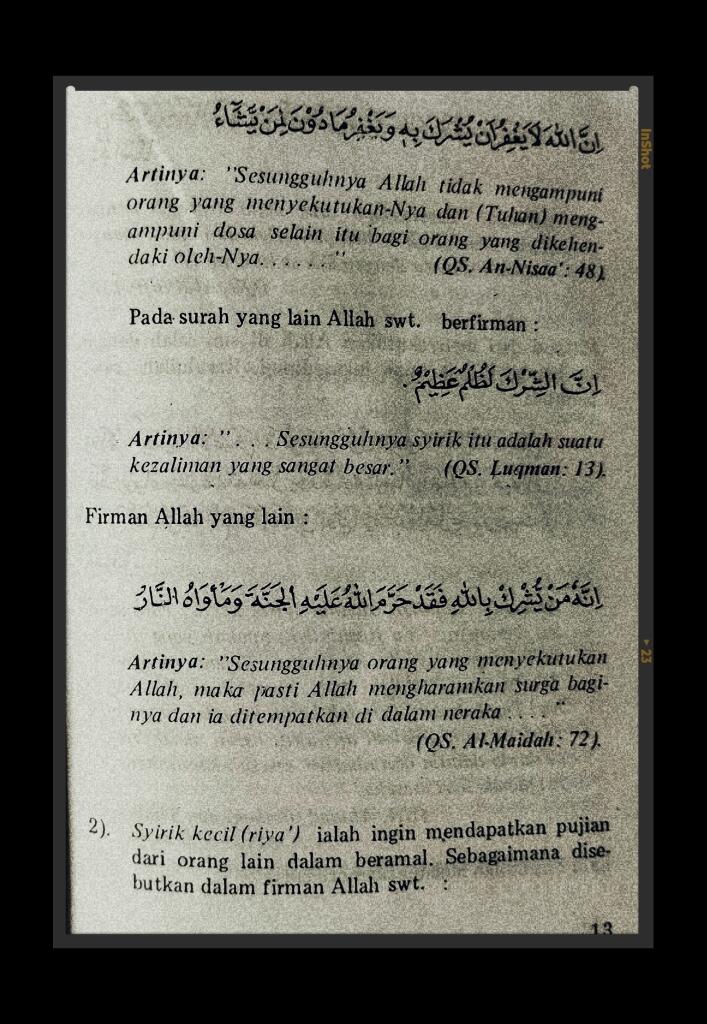 اِنَّ اللهَ لَا يَغْفِرُ اَنْ يُشْرَكَ بِهِ وَيَغْفِرُ مَا دُوْنَ لِمَنْ يَّشَآءُ
Artinya: "Sesungguhnya Allah tidak mengampuni
orang yang menyekutukan-Nya dan (Tuhan) meng-
ampuni dosa selain itu bagi orang yang dikehen-
daki oleh-Nya. . . . . . " (QS. An-Nisaa': 48).
Pada surah yang lain Allah swt. berfirman :
اِنَّ الشِّرْكَ لَظُلْمٌ عَظِيْمٌ .
Artinya: " . . . Sesungguhnya syirik itu adalah suatu
kezaliman yang sangat besar." (QS. Luqman: 13).
Firman Allah yang lain :
اِنَّهُ مَنْ يُّشْرِكْ بِاللهِ فَقَدْ حَرَّمَ اللهُ عَلَيْهِ الْجَنَّةَ وَمَأْوَاهُ النَّارُ
Artinya: "Sesungguhnya orang yang menyekutukan
Allah, maka pasti Allah mengharamkan surga bagi-
nya dan ia ditempatkan di dalam neraka . . . . "
(QS. Al-Maidah: 72).
2). Syirik kecil (riya') ialah ingin mendapatkan pujian
dari orang lain dalam beramal. Sebagaimana dise-
butkan dalam firman Allah swt. :
13
InShot
23